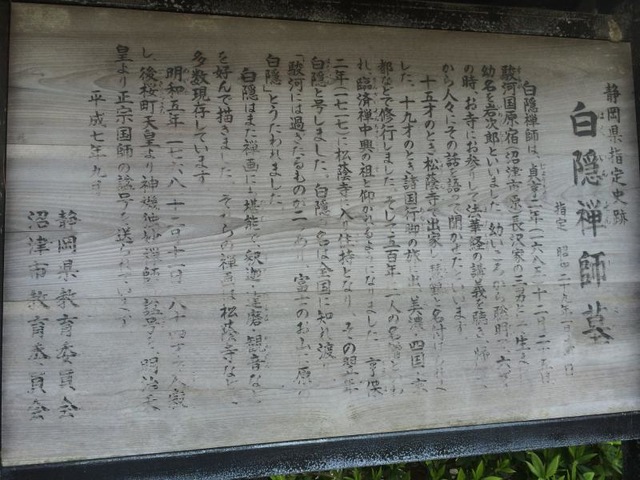 静岡県指定史跡
白隠禅師墓
指定 昭和三十九年
白隠禅師は、貞享二年(一六八五)十二月二十五日
駿河国原宿(沼津市原)長沢家の三男として生まれ
幼名を岩次郎といいました。幼いころから聡明で、六才
の時、お寺にお参りして法華経の講義を聴き、帰って
から人々にその話を語って聞かせたといいます
十五才のとき松蔭寺で出家し、慧鶴と名付けられ
ました。十九才のとき諸国行脚の旅に出、美濃、四国、京
都などで修行しました。そして五百年に一人の名僧とい
われ、臨済禅中興の祖と仰がれるようになりました。享保
二年(一七一七)に松蔭寺に入り住持となり、その翌年
白隠と号しました。白隠の名は全国に知れ渡り
「駿河には過ぎたるものが二つあり、富士のお山に原の
白隠」とうたわれました
白隠はまた禅画にも堪能で、釈迦、達磨、観音など
を好んで描きました。それらの禅画は松蔭寺など
多数現存しています
明和五年(一七六八)十二月十一日、八十四才で入寂
し、後桜町天皇より神機独妙禅師の諡号を、明治天
皇より正宗国師の諡号を送られています
平成七年九月
静岡県教育委員会
沼津市教育委員会